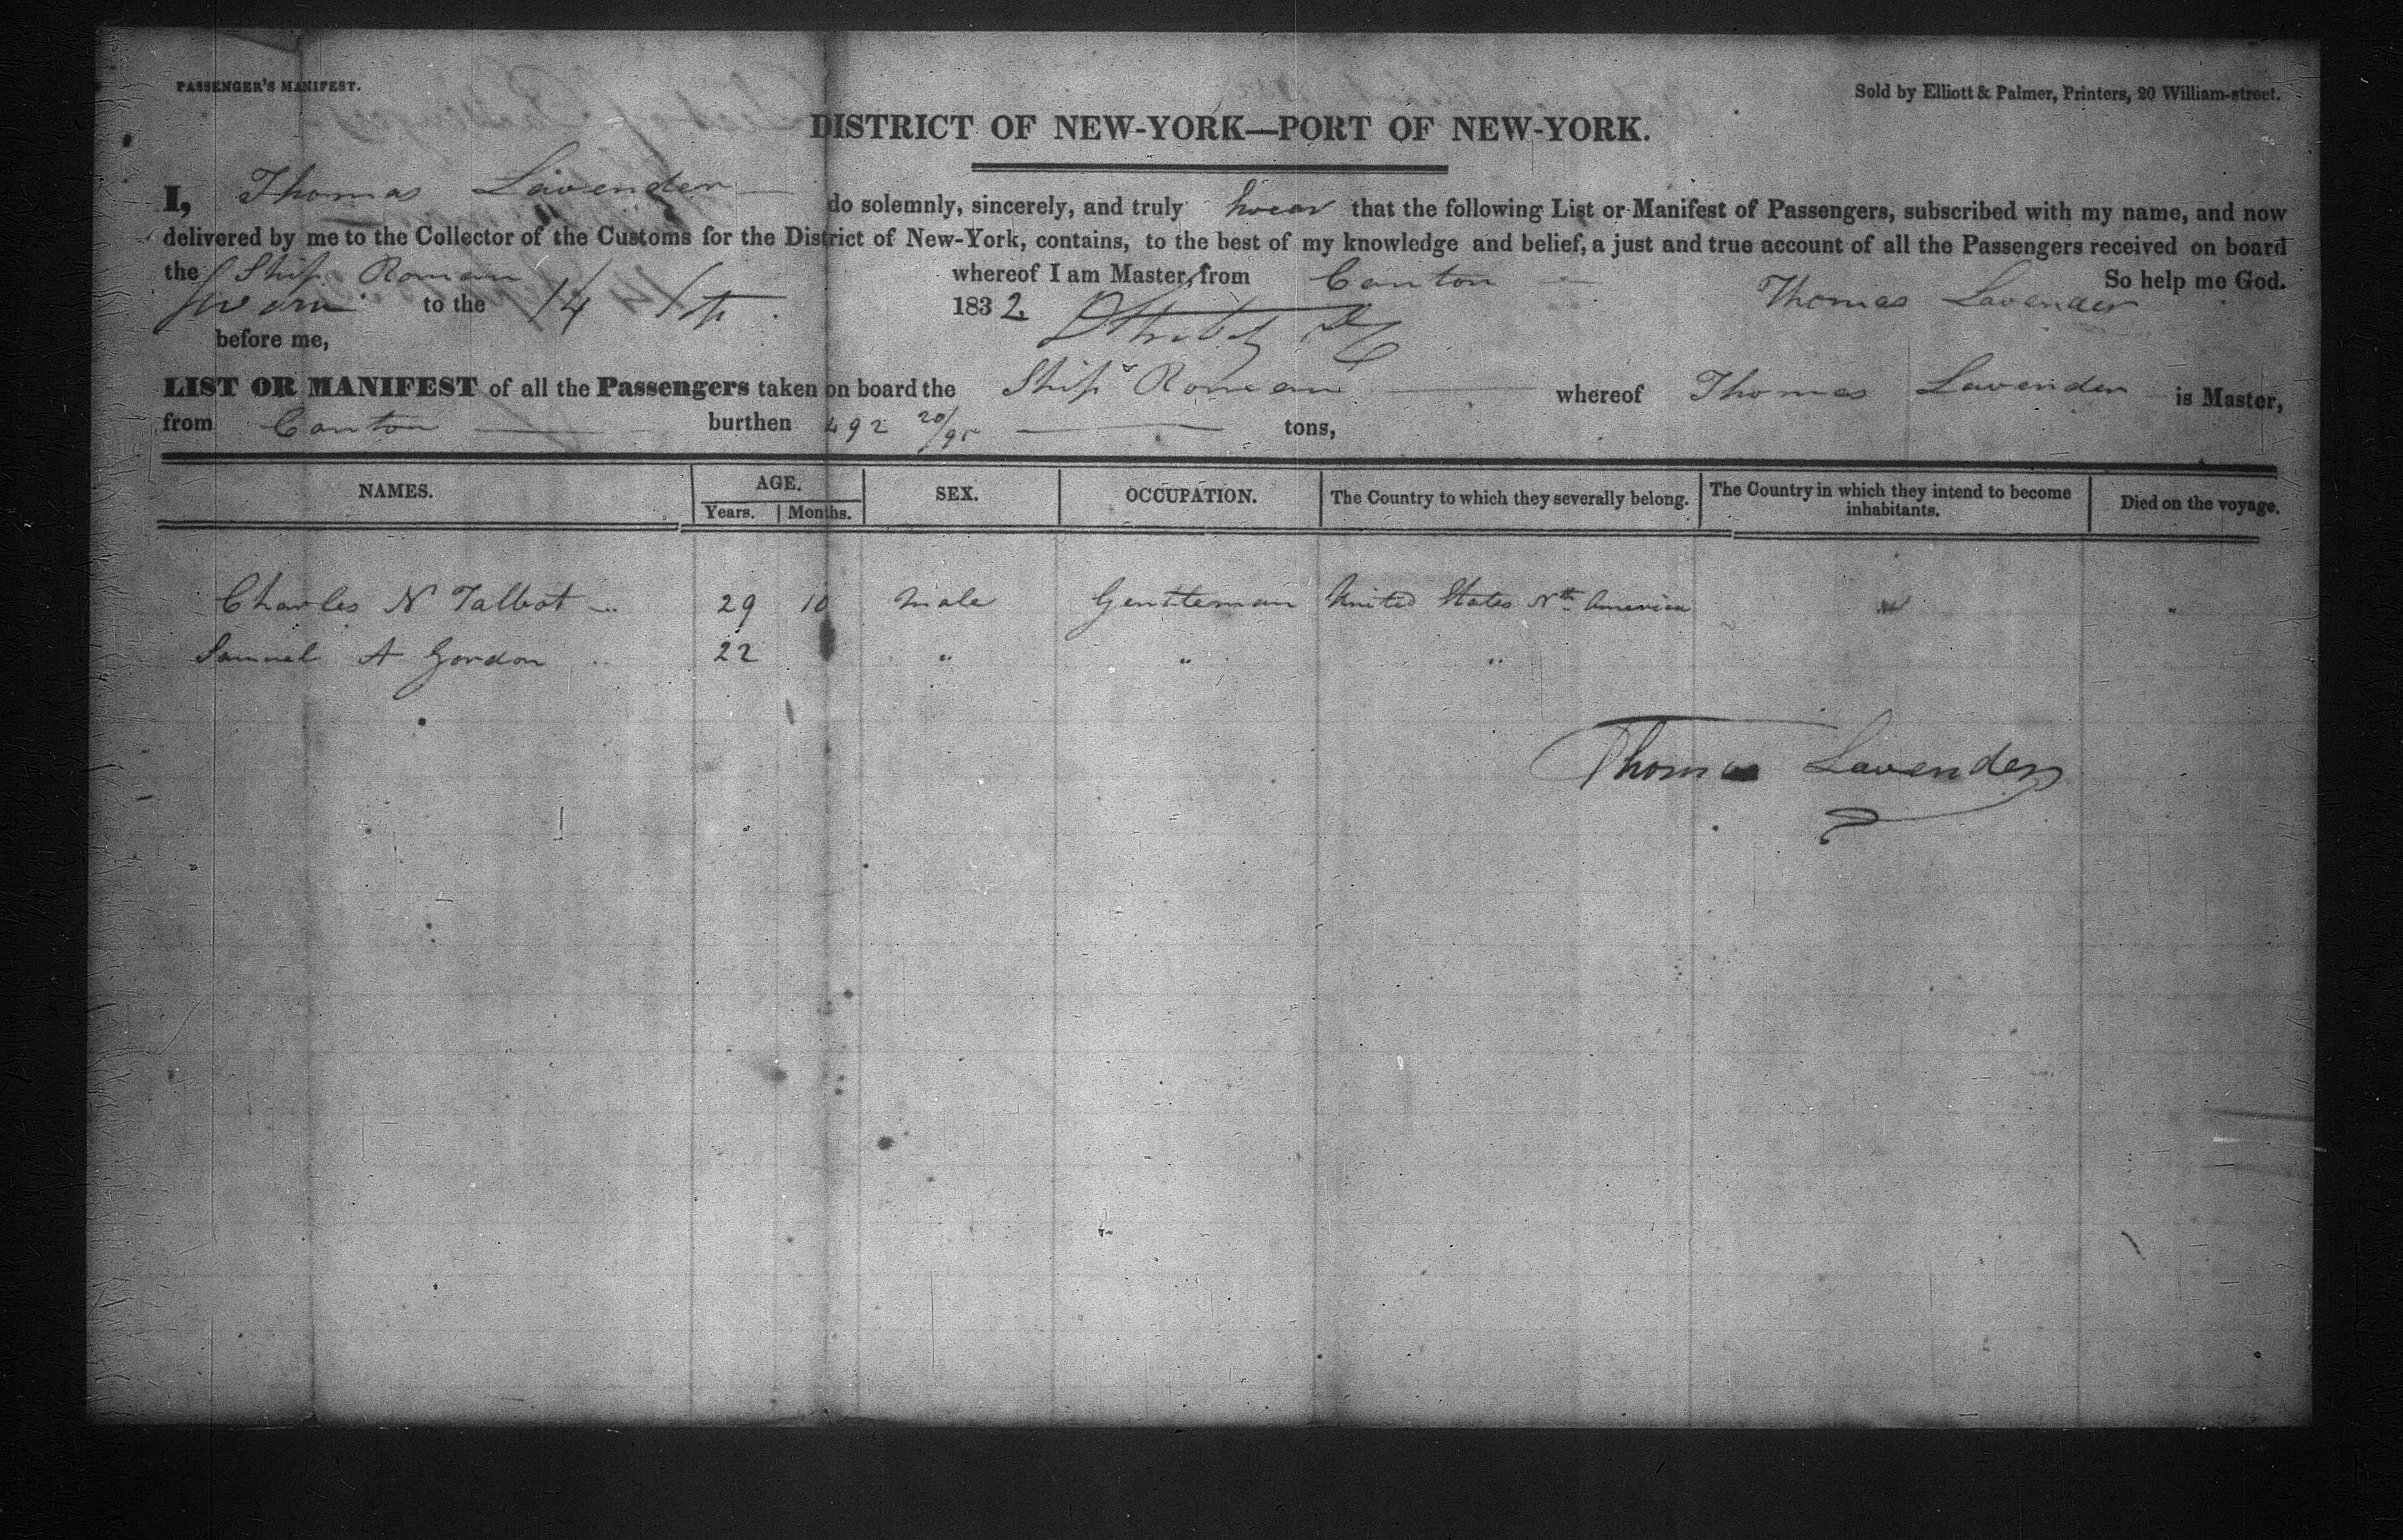 PASSENGER'S MANIFEST.
Sold by Elliott & Palmer, Printers, 20 William-street.
DISTRICT OF NEW-YORK—PORT OF NEW-YORK.
I, Thomas Lavender do solemnly, sincerely, and truly swear that the following List or Manifest of Passengers, subscribed with my name, and now
delivered by me to the Collector of the Customs for the District of New-York, contains, to the best of my knowledge and belief, a just and true account of all the Passengers received on board
the Ship Roman whereof I am Master, from Canton So help me God.
Sworn to the 14 1832 Thomas Lavender
before me,
LIST OR MANIFEST of all the Passengers taken on board the Ship Roman whereof Thomas Lavender is Master,
from Canton burthen 492 20/95 tons,
NAMES. AGE. SEX. OCCUPATION. The Country to which they severally belong. The Country in which they intend to become inhabitants. Died on the voyage.
Years. Months.
Charles N Talbot 29 10 Male Gentleman United States Nth America "
Samuel A Gordon 22 " " "
Thomas Lavender